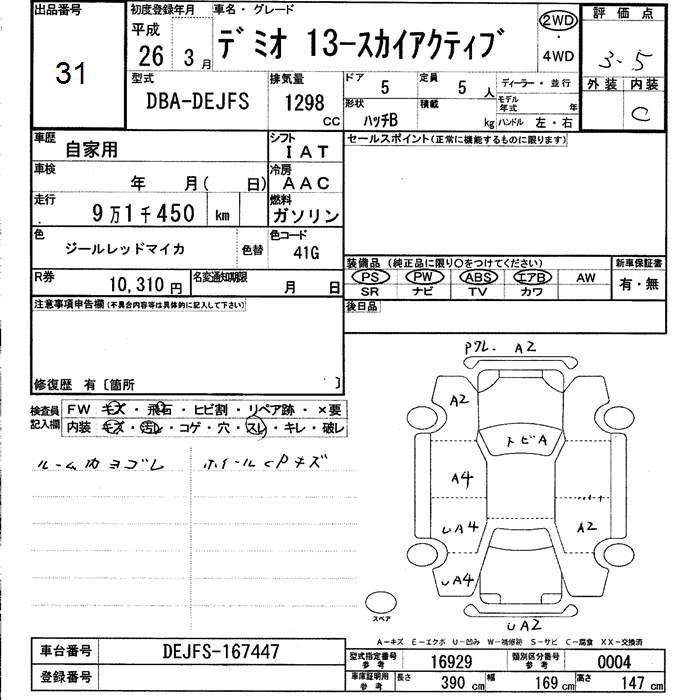 出品番号
31
初度登録年月
平成
26 3月
車名・グレード
デミオ 13-スカイアクティブ
2WD
・
4WD
評価点
3.5
外装 内装
C
型式
DBA-DEJFS
排気量
1298
CC
ドア
5
定員
5 人
ディーラー・並行
形状
ハッチB
積載
kg
モデル年式 年
ハンドル 左・右
車歴
自家用
シフト
IAT
セールスポイント(正常に機能するものに限ります)
車検
年 月( 日)
冷房
AAC
走行
9万1千450 km
燃料
ガソリン
色
ジールレッドマイカ
色替
色コード
41G
装備品 (純正品に限り○をつけてください)
新車保証書
PS PW ABS エアB AW
有・無
SR ナビ TV カワ
R券
10,310円
名変通知期限
月 日
後日品
注意事項申告欄(不具合内容等は具体的に記入して下さい)
修復歴 有〔箇所 〕
検査員
記入欄
FW キズ・飛石・ヒビ割・リペア跡・×要
内装 キズ・汚レ・コゲ・穴・スレ・キレ・破レ
ルーム内ヨゴレ
ホイールCPキズ
Pクレ. A2
A2
トビA
A4
UA4
A2
UA4
UA2
スペア
A-キズ E-エクボ U-凹み W-補修跡 S-サビ C-腐食 XX-交換済
車台番号
DEJFS-167447
登録番号
型式指定番号
参考
16929
類別区分番号
参考
0004
車庫証明用
参考
長さ 390 cm
幅 169 cm
高さ 147 cm